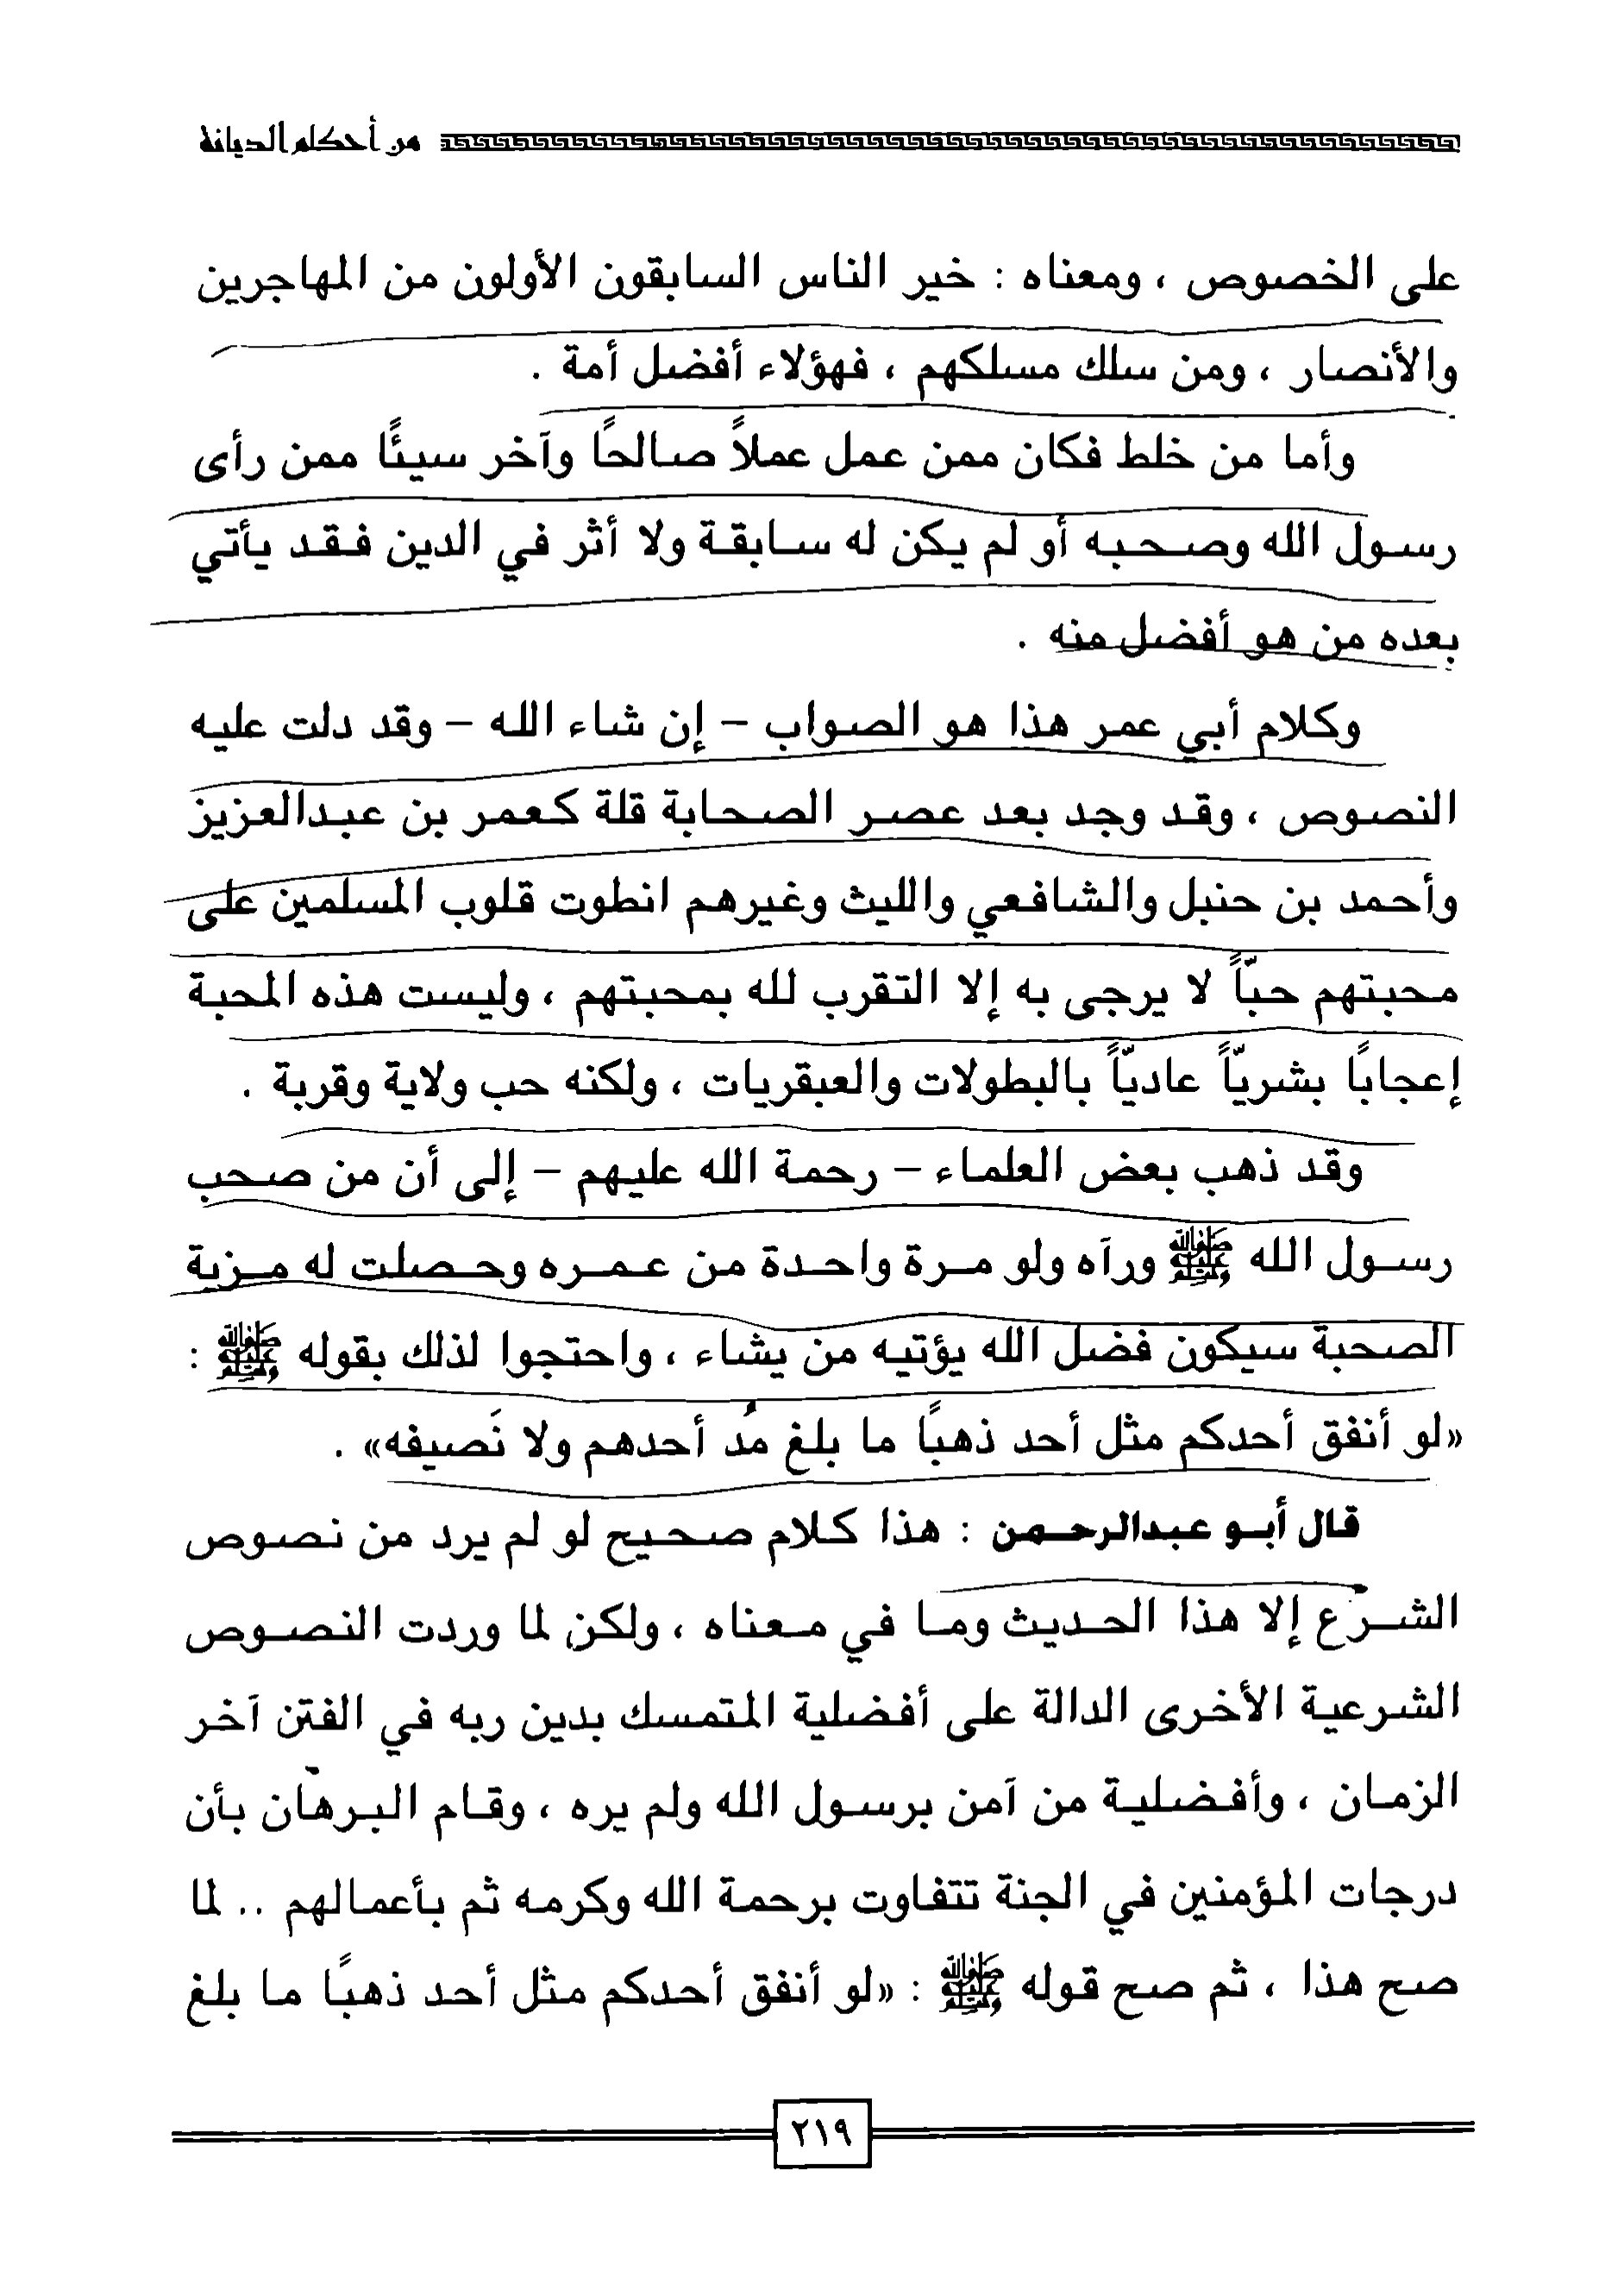 من أحكام الديانة
على الخصوص ، ومعناه : خير الناس السابقون الأولون من المهاجرين
والأنصار ، ومن سلك مسلكهم ، فهؤلاء أفضل أمة .
وأما من خلط فكان ممن عمل عملاً صالحًا وآخر سيئًا ممن رأى
رسول الله وصحبه أو لم يكن له سابقة ولا أثر في الدين فقد يأتي
بعده من هو أفضل منه .
وكلام أبي عمر هذا هو الصواب – إن شاء الله – وقد دلت عليه
النصوص ، وقد وجد بعد عصر الصحابة قلة كعمر بن عبدالعزيز
وأحمد بن حنبل والشافعي والليث وغيرهم انطوت قلوب المسلمين على
محبتهم حبّاً لا يرجى به إلا التقرب لله بمحبتهم ، وليست هذه المحبة
إعجابًا بشريّاً عاديّاً بالبطولات والعبقريات ، ولكنه حب ولاية وقربة .
وقد ذهب بعض العلماء – رحمة الله عليهم – إلى أن من صحب
رسول الله ﷺ ورآه ولو مرة واحدة من عمره وحصلت له مزية
الصحبة سيكون فضل الله يؤتيه من يشاء ، واحتجوا لذلك بقوله ﷺ :
«لو أنفق أحدكم مثل أحد ذهبًا ما بلغ مُد أحدهم ولا نَصيفه» .
قال أبو عبدالرحمن : هذا كلام صحيح لو لم يرد من نصوص
الشرع إلا هذا الحديث وما في معناه ، ولكن لما وردت النصوص
الشرعية الأخرى الدالة على أفضلية المتمسك بدين ربه في الفتن آخر
الزمان ، وأفضلية من آمن برسول الله ولم يره ، وقام البرهان بأن
درجات المؤمنين في الجنة تتفاوت برحمة الله وكرمه ثم بأعمالهم .. لما
صح هذا ، ثم صح قوله ﷺ : «لو أنفق أحدكم مثل أحد ذهبًا ما بلغ
٢١٩